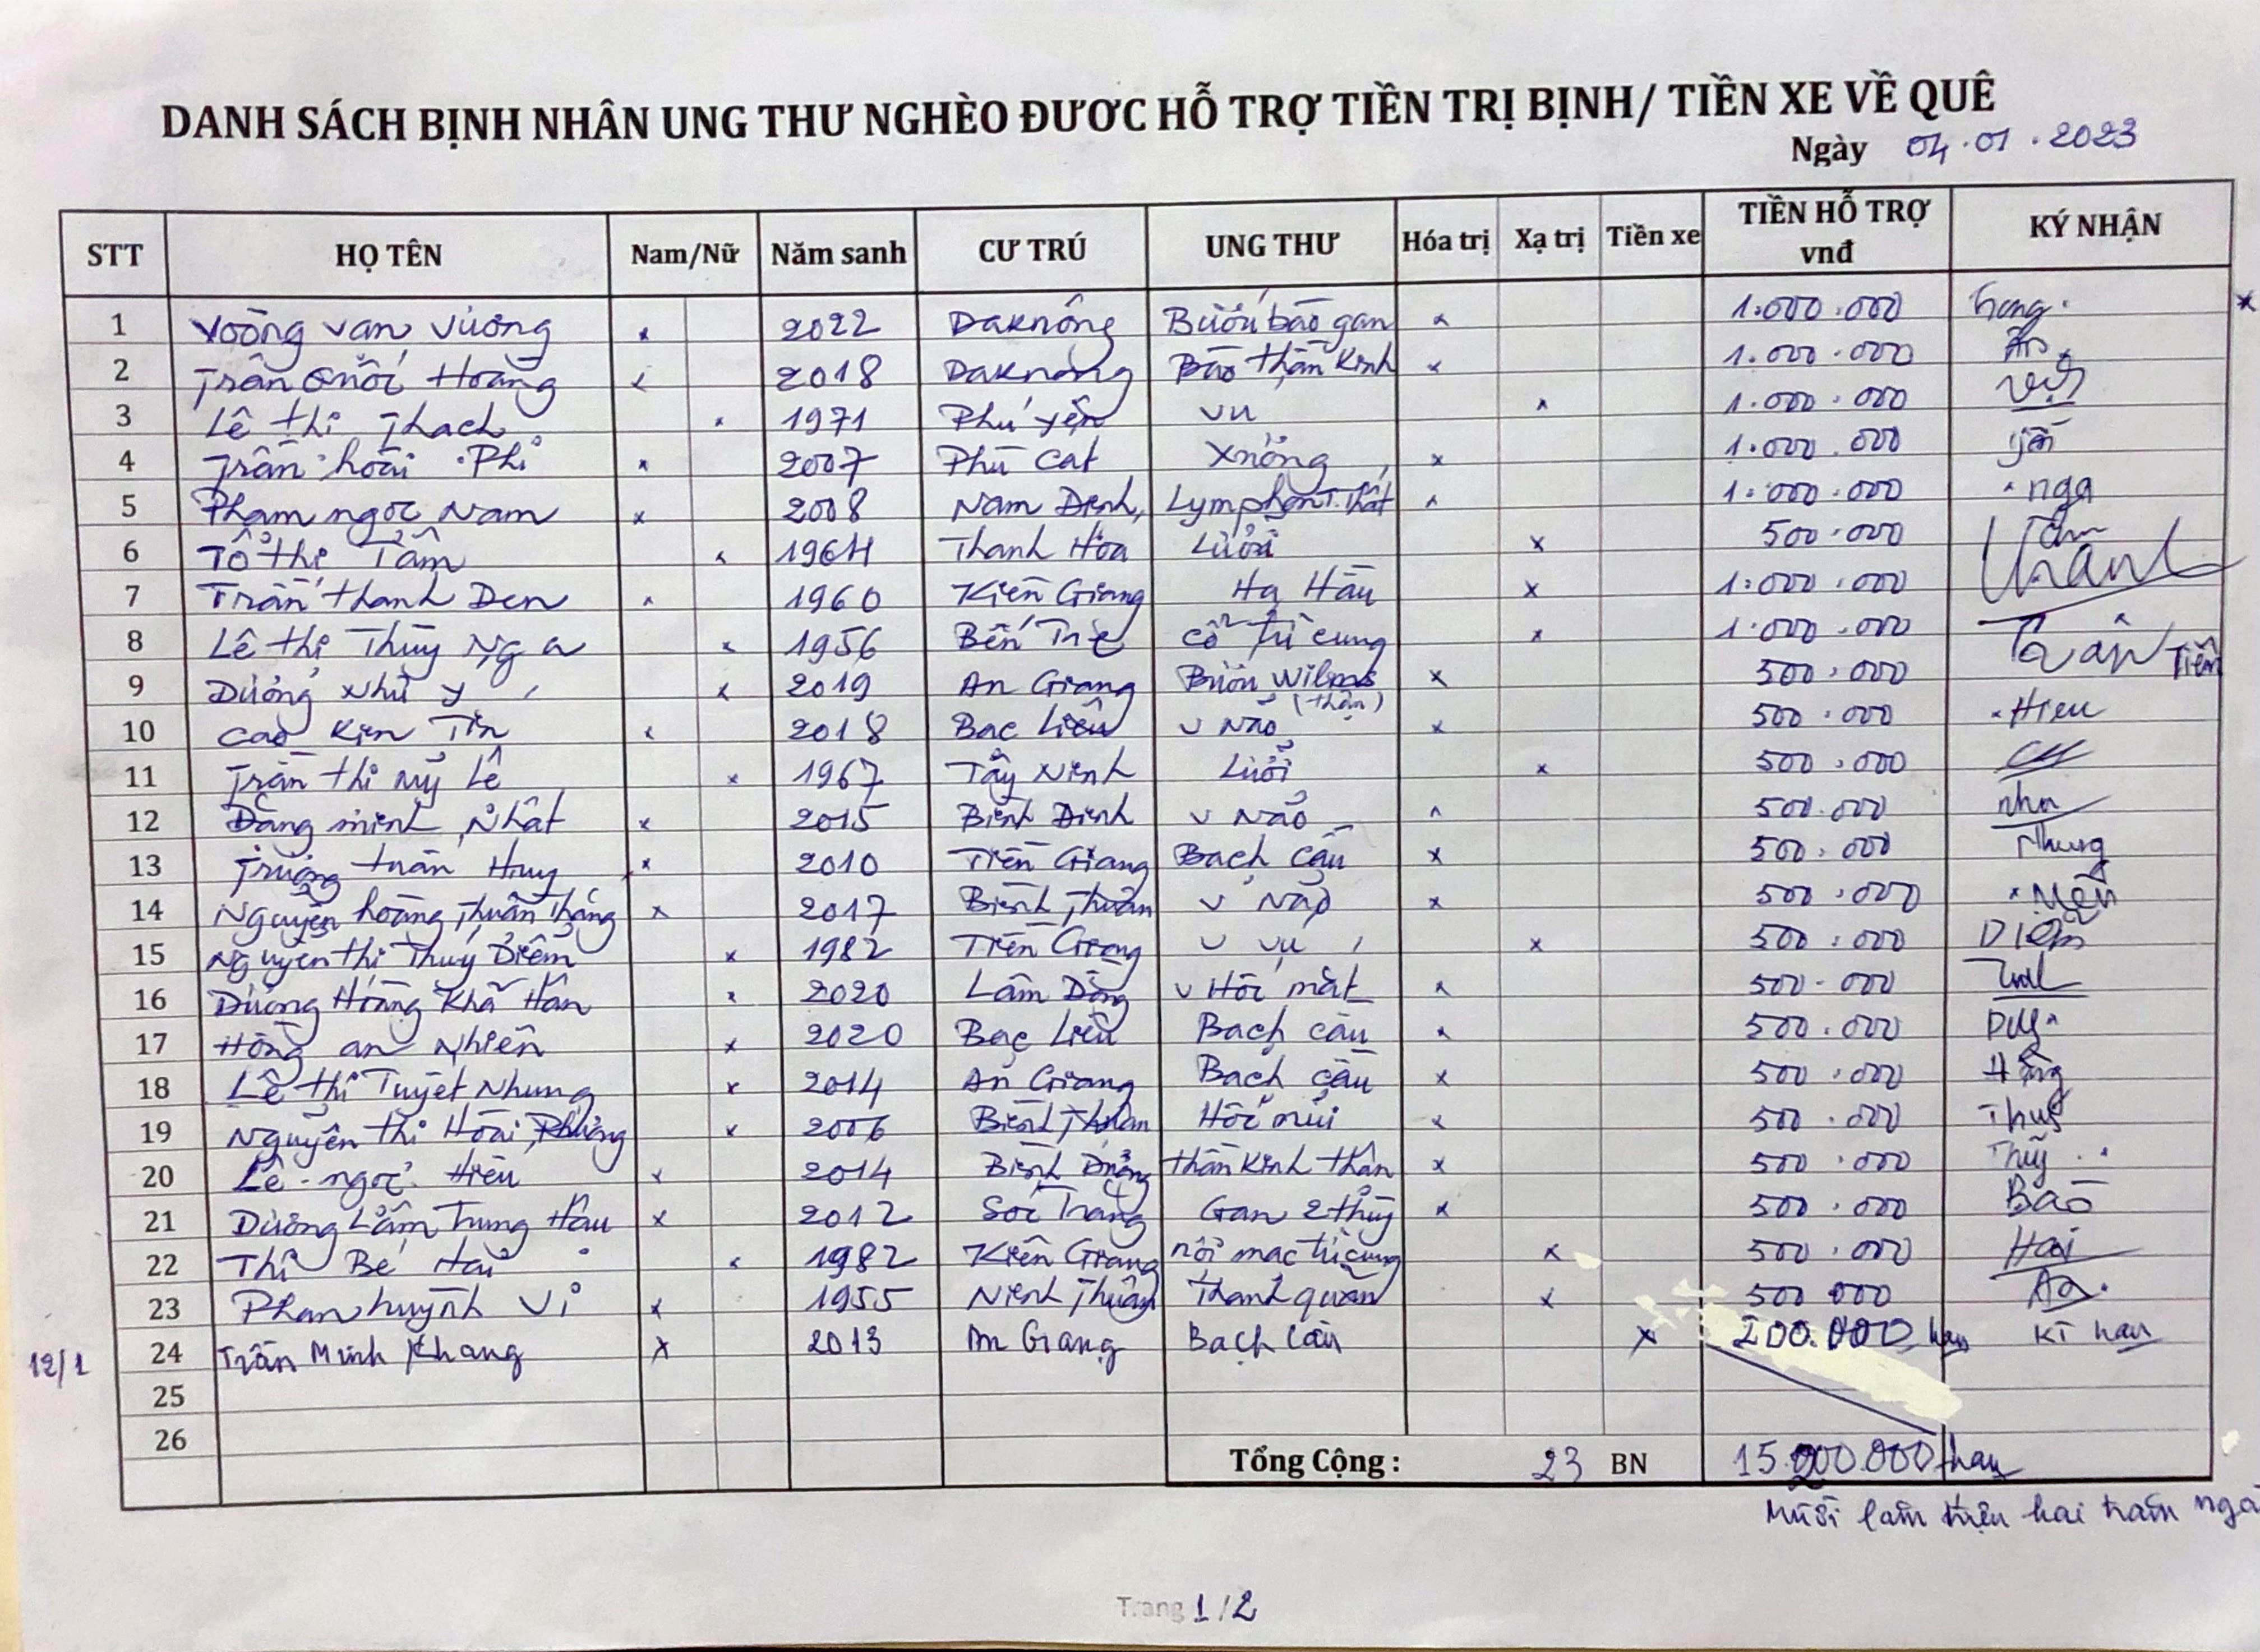 DANH SÁCH BỊNH NHÂN UNG THƯ NGHÈO ĐƯƠC HỖ TRỢ TIỀN TRỊ BỊNH/ TIỀN XE VỀ QUÊ
Ngày 04.01.2023
STT HỌ TÊN Nam/Nữ Năm sanh CƯ TRÚ UNG THƯ Hóa trị Xạ trị Tiền xe TIỀN HỖ TRỢ vnđ KÝ NHẬN
1 Voòng Van Vương x 2022 Daknông Bướu bào gan x 1.000.000 x
2 Trần Quốc Hoàng x 2018 Daknông Bão thần kinh x 1.000.000
3 Lê thị Thach x 1971 Phú yên vu x 1.000.000
4 Trần hoài Phi x 2007 Phù cat Xương x 1.000.000
5 Phạm ngọc Nam x 2008 Nam Định Lymphôn T. thất x 1.000.000 nga
6 Tô thi Tâm x 1964 Thanh Hóa Lưỡi x 500.000 Tâm
7 Trần thanh Den x 1960 Kiên Giang Hạ Hầu x 1.000.000
8 Lê thị Thúy Nga x 1956 Bến Tre cổ tử cung x 1.000.000
9 Dương Như Ý x 2019 An Giang Bướu Wilms (thận) x 500.000 Tiền
10 Cao Kiên Tín x 2018 Bạc Liêu u Não x 500.000 Hieu
11 Trần thi mỹ Lê x 1967 Tây Ninh Lưỡi x 500.000
12 Đặng minh Nhất x 2015 Bình Định u Não x 500.000 nhn
13 Trương tuấn Huy x 2010 Tiền Giang Bạch cầu x 500.000 Nhung
14 Nguyễn hoàng Thuần Thắng x 2017 Bình Thuân u Não x 500.000
15 Nguyen thi Thuý Diễm x 1982 Tiền Giang u vu x 500.000 Diễm
16 Dương Hoàng Khả Hân x 2020 Lâm Đồng u Hốc mắt x 500.000
17 Hồng an Nhiên x 2020 Bạc Liêu Bạch cầu x 500.000
18 Lê thi Tuyết Nhung x 2014 An Giang Bạch cầu x 500.000 Hồng
19 Nguyễn thi Hoài Phương x 2006 Bình Thuân Hốc mũi x 500.000 Thuý
20 Lê ngọc Hiếu x 2014 Bình Dương thần kinh thận x 500.000 Thủy
21 Dương Lâm Trung Hâu x 2012 Sóc Trăng Gan 2 thùy x 500.000 Bao
22 Thi Bé Hai x 1982 Kiên Giang nội mạc tử cung x 500.000 Hai
23 Phan huỳnh Vi x 1955 Ninh Thuân Thanh quản x 500 000
12/1 24 Trần Minh Khang x 2013 An Giang Bạch Cầu x 200.000 han Kí han
25
26
Tổng Cộng : 23 BN 15.200.000 han
Mười lăm triệu hai trăm ngà
Trang 1/2